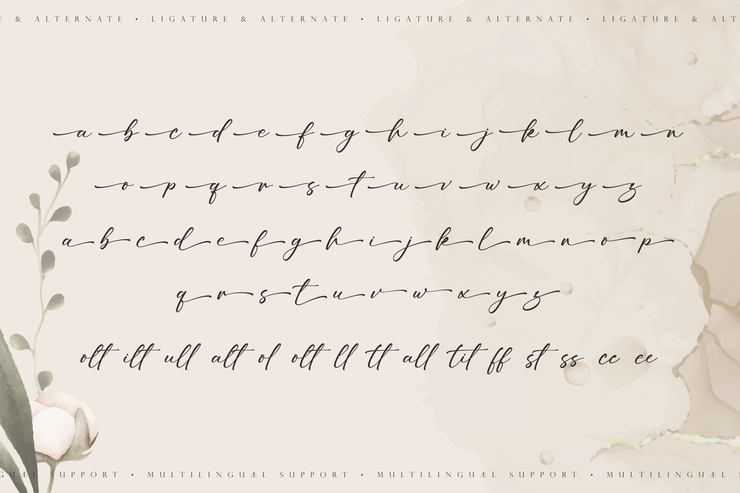 & ALTERNATE • LIGATURE & ALTERNATE • LIGATURE & ALTERNATE • LIGATURE & ALT
a b c d e f g h i j k l m n
o p q r s t u v w x y z
a b c d e f g h i j k l m n o p
q r s t u v w x y z
olt ilt ull alt ol olt ll tt all tit ff st ss cc ee
SUPPORT • MULTILINGUÆL SUPPORT • MULTILINGUÆL SUPPORT • MULTILINGUÆL